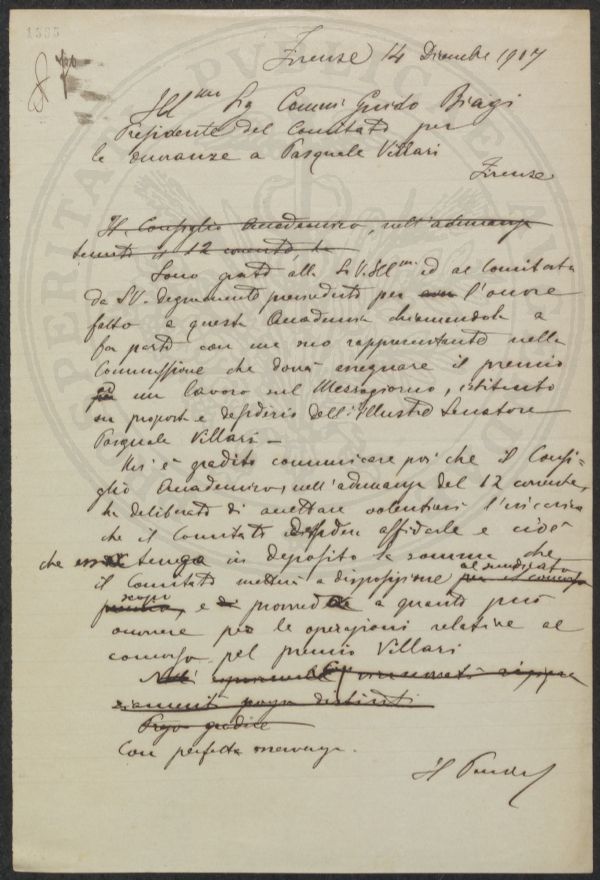 1595
Firenze 14 Dicembre 1907
Ill.mo Sig Comm. Guido Biagi
Presidente del Comitato per
le onoranze a Pasquale Villari
Firenze
Il Consiglio Accademico, nell'adunanza
tenuta il 12 corrente, ha
Sono grato alla S.V. Ill.ma ed al Comitato
da SV. degnamente presieduto per l'onore
fatto a questa Accademia chiamandola a
far parte con un suo rappresentante nella
Commissione che dovrà assegnare il premio
ad un lavoro sul Mezzogiorno, istituito
su proposta e desiderio dell'Illustre Senatore
Pasquale Villari —
Mi è gradito comunicare poi che il Consi-
glio Accademico, nell'adunanza del 12 corrente,
ha deliberato di accettare volentieri l'incarico
che il Comitato desidera affidarle e cioè
che tenga in deposito le somme che
il Comitato metterà a disposizione al sindacato per il concorso
scopo e provveda a quanto può
occorrere per le operazioni relative al
concorso pel premio Villari
distinti
Prego gradire
Con perfetta osservanza.
Il